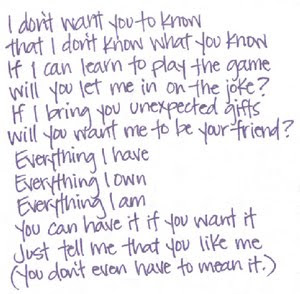 I don't want you to know
that I don't know what you know
If I can learn to play the game
will you let me in on the joke?
If I bring you unexpected gifts
will you want me to be your friend?
Everything I have
Everything I own
Everything I am
You can have it if you want it
Just tell me that you like me
(You don't even have to mean it.)